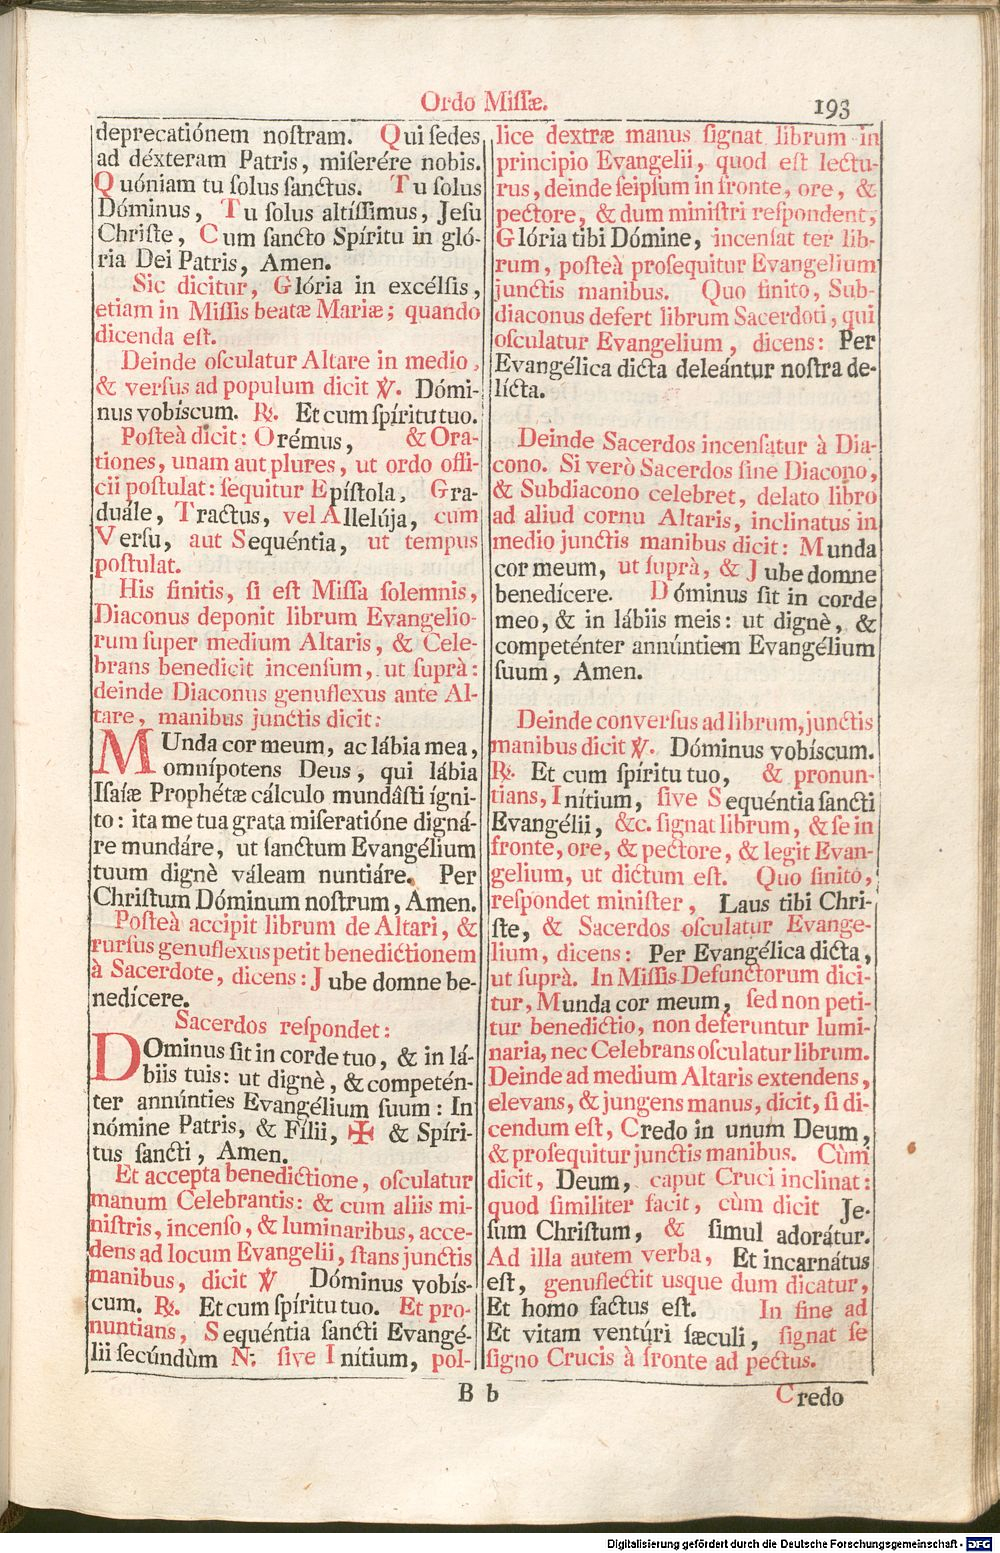 Ordo Miſſæ. 193
deprecatiónem noſtram. Qui ſedes
ad déxteram Patris, miſerére nobis.
Quóniam tu ſolus ſanctus. Tu ſolus
Dóminus, Tu ſolus altíſſimus, Jeſu
Chriſte, Cum ſancto Spíritu in gló-
ria Dei Patris, Amen.
Sic dicitur, Glória in excélſis,
etiam in Miſſis beatæ Mariæ; quando
dicenda eſt.
Deinde oſculatur Altare in medio,
& verſus ad populum dicit ℣. Dómi-
nus vobíscum. ℟. Et cum ſpíritu tuo.
Poſteà dicit: Orémus, & Ora-
tiones, unam aut plures, ut ordo offi-
cii poſtulat: ſequitur Epíſtola, Gra-
duále, Tractus, vel Allelúja, cum
Verſu, aut Sequéntia, ut tempus
poſtulat.
His finitis, ſi eſt Miſſa ſolemnis,
Diaconus deponit librum Evangelio-
rum ſuper medium Altaris, & Cele-
brans benedicit incenſum, ut ſuprà:
deinde Diaconus genuflexus ante Al-
tare, manibus junctis dicit:
MUnda cor meum, ac lábia mea,
omnípotens Deus, qui lábia
Iſaíæ Prophétæ cálculo mundâſti ígni-
to: ita me tua grata miſeratióne digná-
re mundáre, ut ſanctum Evangélium
tuum dignè váleam nuntiáre. Per
Chriſtum Dóminum noſtrum, Amen.
Poſteà accipit librum de Altari, &
rurſus genuflexus petit benedictionem
à Sacerdote, dicens: Jube domne be-
nedícere.
Sacerdos reſpondet:
DOminus ſit in corde tuo, & in lá-
biis tuis: ut dignè, & competén-
ter annúnties Evangélium ſuum: In
nómine Patris, & Fílii, ✠ & Spíri-
tus ſancti, Amen.
Et accepta benedictione, oſculatur
manum Celebrantis: & cum aliis mi-
niſtris, incenſo, & luminaribus, acce-
dens ad locum Evangelii, ſtans junctis
manibus, dicit ℣ Dóminus vobís-
cum. ℟. Et cum ſpíritu tuo. Et pro-
nuntians, Sequéntia ſancti Evangé-
lii ſecúndùm N: ſive Inítium, pol-
lice dextræ manus ſignat librum in
principio Evangelii, quod eſt lectu-
rus, deinde ſeipſum in fronte, ore, &
pectore, & dum miniſtri reſpondent,
Glória tibi Dómine, incenſat ter lib-
rum, poſteà proſequitur Evangelium
junctis manibus. Quo finito, Sub-
diaconus defert librum Sacerdoti, qui
oſculatur Evangelium, dicens: Per
Evangélica dicta deleántur noſtra de-
lícta.
Deinde Sacerdos incenſatur à Dia-
cono. Si verò Sacerdos ſine Diacono,
& Subdiacono celebret, delato libro
ad aliud cornu Altaris, inclinatus in
medio junctis manibus dicit: Munda
cor meum, ut ſuprà, & Jube domne
benedícere. Dóminus ſit in corde
meo, & in lábiis meis: ut dignè, &
competénter annúntiem Evangélium
ſuum, Amen.
Deinde converſus ad librum, junctis
manibus dicit ℣. Dóminus vobíscum.
℟. Et cum ſpíritu tuo, & pronun-
tians, Inítium, ſive Sequéntia ſancti
Evangélii, &c. ſignat librum, & ſe in
fronte, ore, & pectore, & legit Evan-
gelium, ut dictum eſt. Quo finito,
reſpondet miniſter, Laus tibi Chri-
ſte, & Sacerdos oſculatur Evange-
lium, dicens: Per Evangélica dicta,
ut ſuprà. In Miſſis Defunctorum dici-
tur, Munda cor meum, ſed non peti-
tur benedictio, non deferuntur lumi-
naria, nec Celebrans oſculatur librum.
Deinde ad medium Altaris extendens,
elevans, & jungens manus, dicit, ſi di-
cendum eſt, Credo in unum Deum,
& proſequitur junctis manibus. Cùm
dicit, Deum, caput Cruci inclinat:
quod ſimiliter facit, cùm dicit Je-
ſum Chriſtum, & ſimul adorátur.
Ad illa autem verba, Et incarnátus
eſt, genuflectit usque dum dicatur,
Et homo factus eſt. In fine ad
Et vitam ventúri ſæculi, ſignat ſe
ſigno Crucis à fronte ad pectus.
B b Credo
Digitalisierung gefördert durch die Deutsche Forschungsgemeinschaft - DFG